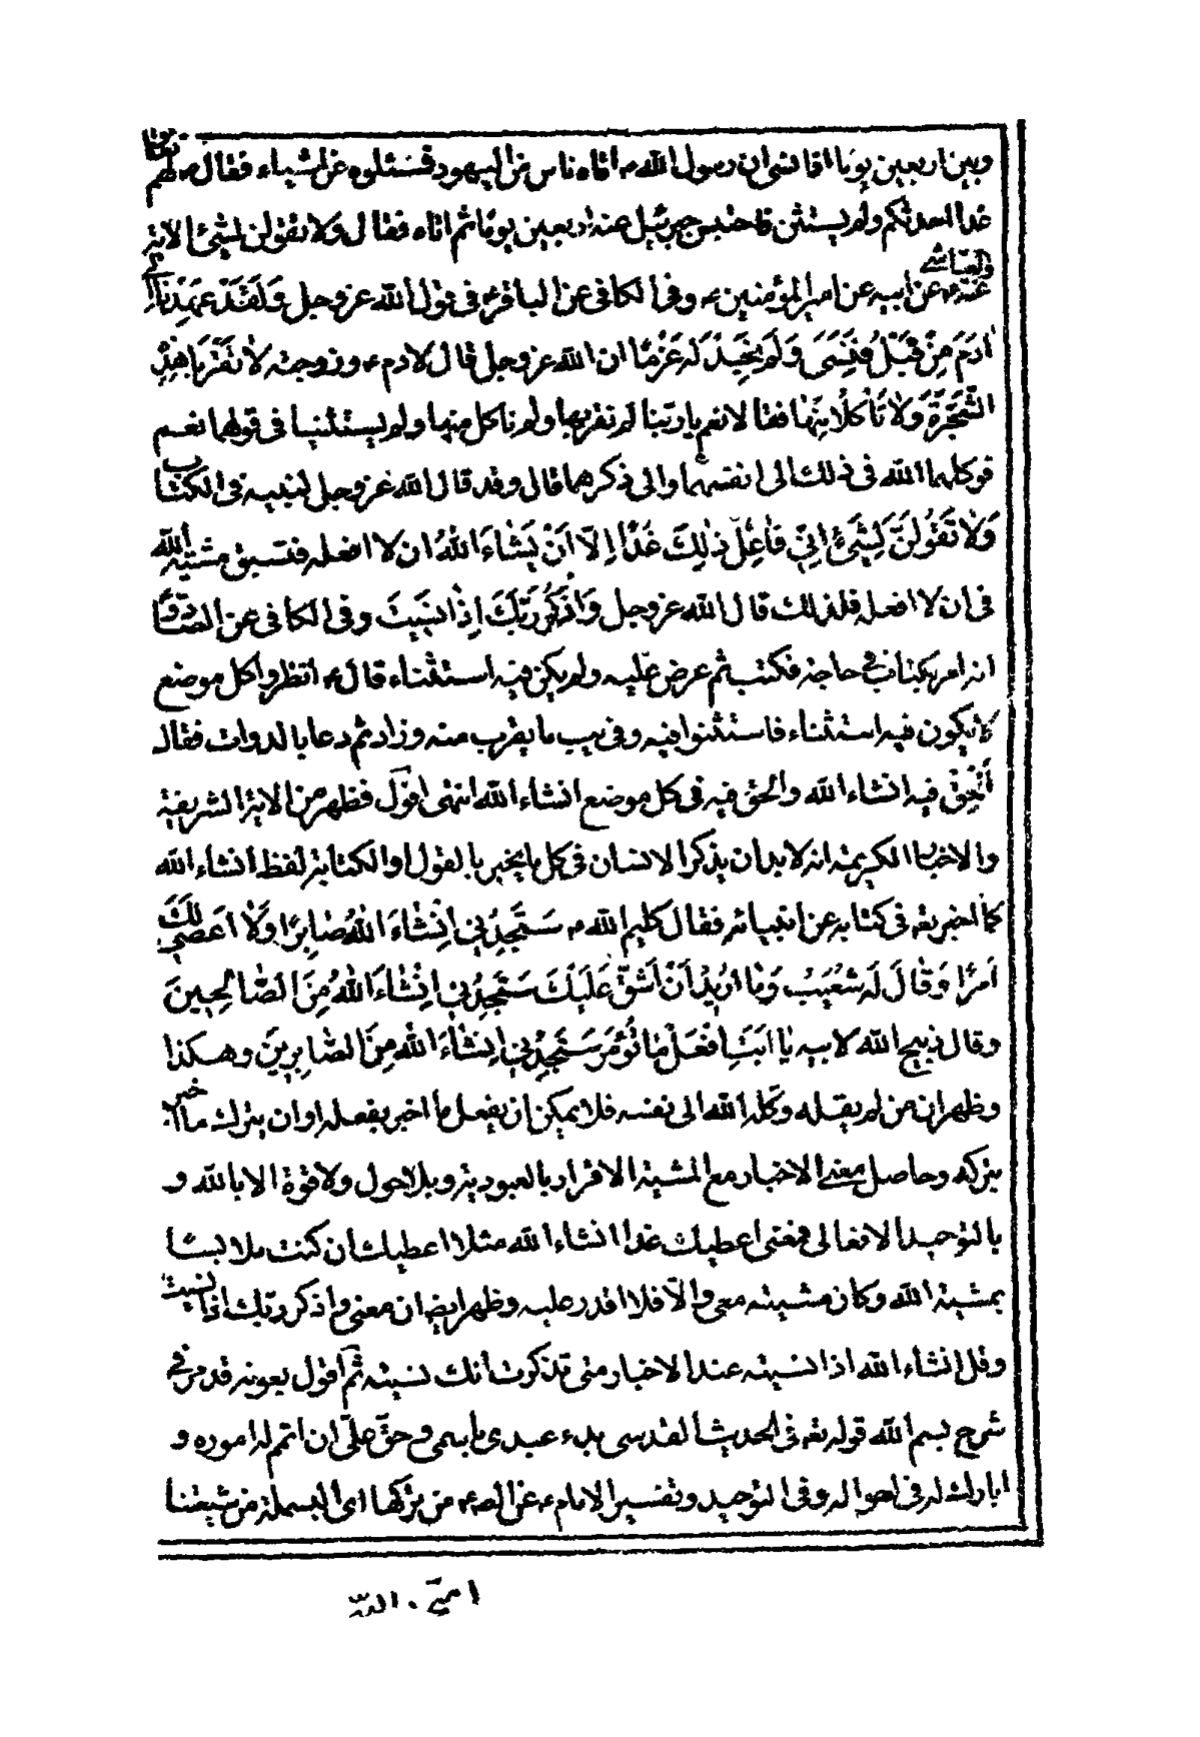 وبين اربعين يوما اذا نسى ان رسول الله ص اتاه ناس من اليهود فسئلوه عن اشياء فقال ص لهم تعالوا
غدا احدثكم ولم يستثن فاحتبس جبرئيل عنه اربعين يوما ثم اتاه فقال ولا تقولن لشئ الاية
والعياشي
عنه ع عن ابيه عن امير المؤمنين ع وفى الكافى عن الباقر ع فى قول الله عز وجل وَلَقَدْ عَهِدْنَا اِلى
ادَمَ مِنْ قَبْلُ فَنَسِىَ وَلَمْ نَجِدْ لَهُ عَزْمًا ان الله عز وجل قال لادم ع وزوجته لا تَقْرَبَا هٰذِهِ
الشَّجَرَةَ وَلا تَأْكُلا مِنْهَا فقالا نعم يا ربنا لم نقربها ولم ناكل منها ولم يستثنيا فى قولهما نعم
فوكلهما الله فى ذلك الى انفسهما والى ذكرهما قال وقد قال الله عز وجل لنبيه فى الكتاب
وَلا تَقُولَنَّ لِشَىْءٍ اِنّى فَاعِلٌ ذٰلِكَ غَدًا اِلّا اَنْ يَشَاءَ اللهُ ان لا افعله فتسبق مشية الله
فى ان لا افعله فلذلك قال الله عز وجل وَاذْكُرْ رَبَّكَ اِذَا نَسِيتَ وفى الكافى عن الصادق ع
انه امر بكتاب فى حاجة فكتب ثم عرض عليه ولم يكن فيه استثناء قال ع انظروا كل موضع
لا يكون فيه استثناء فاستثنوا فيه وفى يب ما يقرب منه وزاد ثم دعا بالدوات فقال
اَلْحِقْ فيه انشاء الله والحق فيه فى كل موضع انشاء الله انتهى اقول فظهر من الاية الشريفة
والاخبار الكريمة انه لابد ان يذكر الانسان فى كل ما يخبر بالقول او الكتابة لفظ انشاء الله
كما اخبر به فى كتابه عن انبيائه فقال كليم الله ص سَتَجِدُنى اِنْشَاءَ اللهُ صَابِرًا وَلا اَعْصى لَكَ
اَمْرًا وَقَالَ لَه شُعَيْبٌ وَمَا اُرِيدُ اَنْ اَشُقَّ عَلَيْكَ سَتَجِدُنى اِنْشَاءَ اللهُ مِنَ الصَّالِحِينَ
وقال ذبيح الله لابيه يَا اَبَتِ افْعَلْ مَا تُؤْمَرُ سَتَجِدُنى اِنْشَاءَ اللهُ مِنَ الصَّابِرِينَ وهكذا
وظهر ان من لم يقله وكله الله الى نفسه فلا يمكن ان يفعل ما اخبر بفعله او ان يترك ما اخبر
بتركه وحاصل معنى الاخبار مع المشية الاقرار بالعبودية وبلا حول ولا قوة الا بالله و
بالتوحيد الافعالى فمعنى اعطيك غدا انشاء الله مثلا اعطيك ان كنت ملابسا
بمشية الله وكان مشيته معى والّا فلا اقدر عليه وظهر ايضا ان معنى واذكر ربك اذا نسيت
وقل انشاء الله اذا نسيته عند الاخبار متى تذكرت انك نسيته ثم اقول بعونه قد مر فى
شرح بسم الله قوله تع فى الحديث القدسى بدء عبدى باسمى وحق علىّ ان اتمم له اموره و
ابارك له فى احواله وفى التوحيد وتفسير الامام ع عن الص ع من تركها اى البسملة من شيعتنا